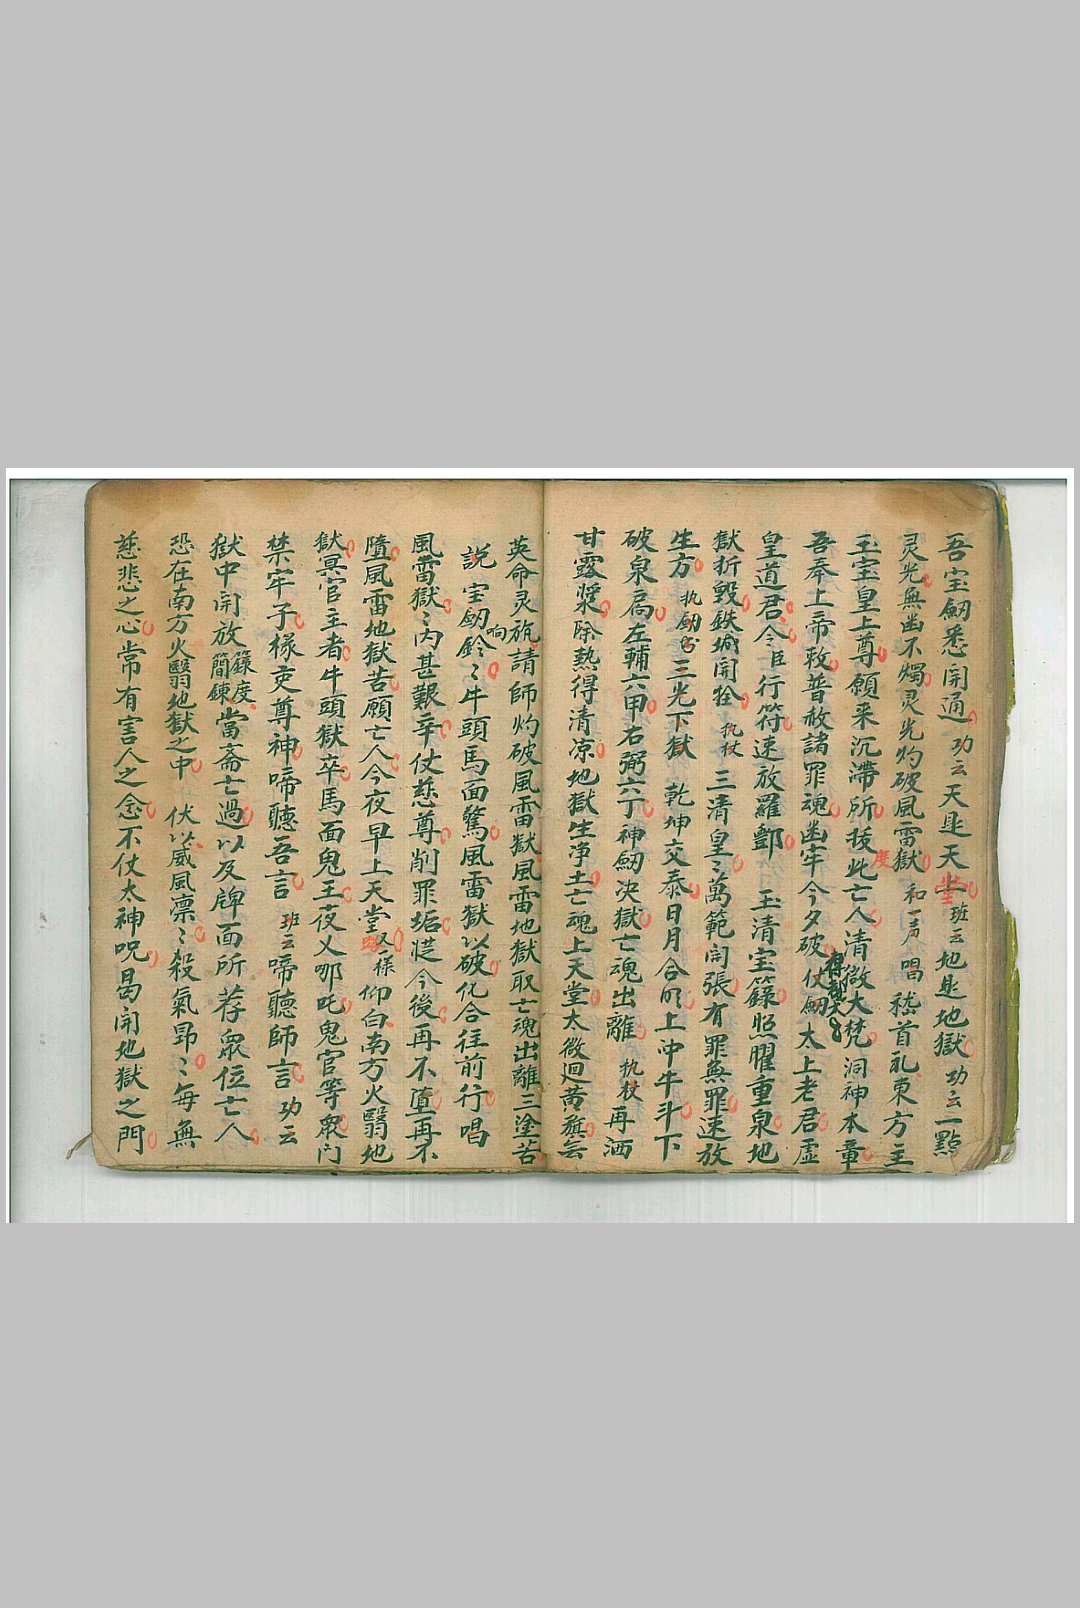 吾宝劒悉開通 功云天是天堂 班云地是地獄 功云一點
灵光無幽不燭灵光灼破風雷獄 和声唱 嵇首乱東方主
玉宝皇上尊願来沉滯所拔度此亡人清微大梵 洞神本章
吾奉上帝敕普赦諸罪魂幽牢今夕破仗劒太上老君虛
皇道君令臣行符速放羅酆 玉清宝籙照曜重泉地
獄折毀鉄城開拴 执杖 三清皇〻萬範開張有罪無罪速放
生方 执劒 三光下獄 乾坤交泰日月合明上冲牛斗下
破泉扃左輔六甲右弼六丁神劒決獄亡魂出離 执杖 再洒
甘露漿除熱得清凉地獄生净土亡魂上天堂太微迴黄旗無
英命灵旛請師灼破風雷獄風雷地獄取亡魂出離三塗苦
說 宝劒鈴响〻牛頭馬面驚風雷獄以破化令往前行唱
風雷獄〻内甚艱辛仗慈尊削罪垢從今後再不墮再不
墮風雷地獄苦願亡人今夜早上天堂 又様 仰白南方火翳地
獄冥官主者牛頭獄卒馬面鬼王夜乂哪吒鬼官等衆门
禁牢子椽吏尊神啼聽吾言 班云 啼聽師言 功云
獄中開放簡錬籙度當斎亡過以及牌面所荐眾位亡人
恐在南方火翳地獄之中 伏以威風凛〻殺氣昂〻每無
慈悲之心常有害人之念不仗太神呪曷開地獄之門